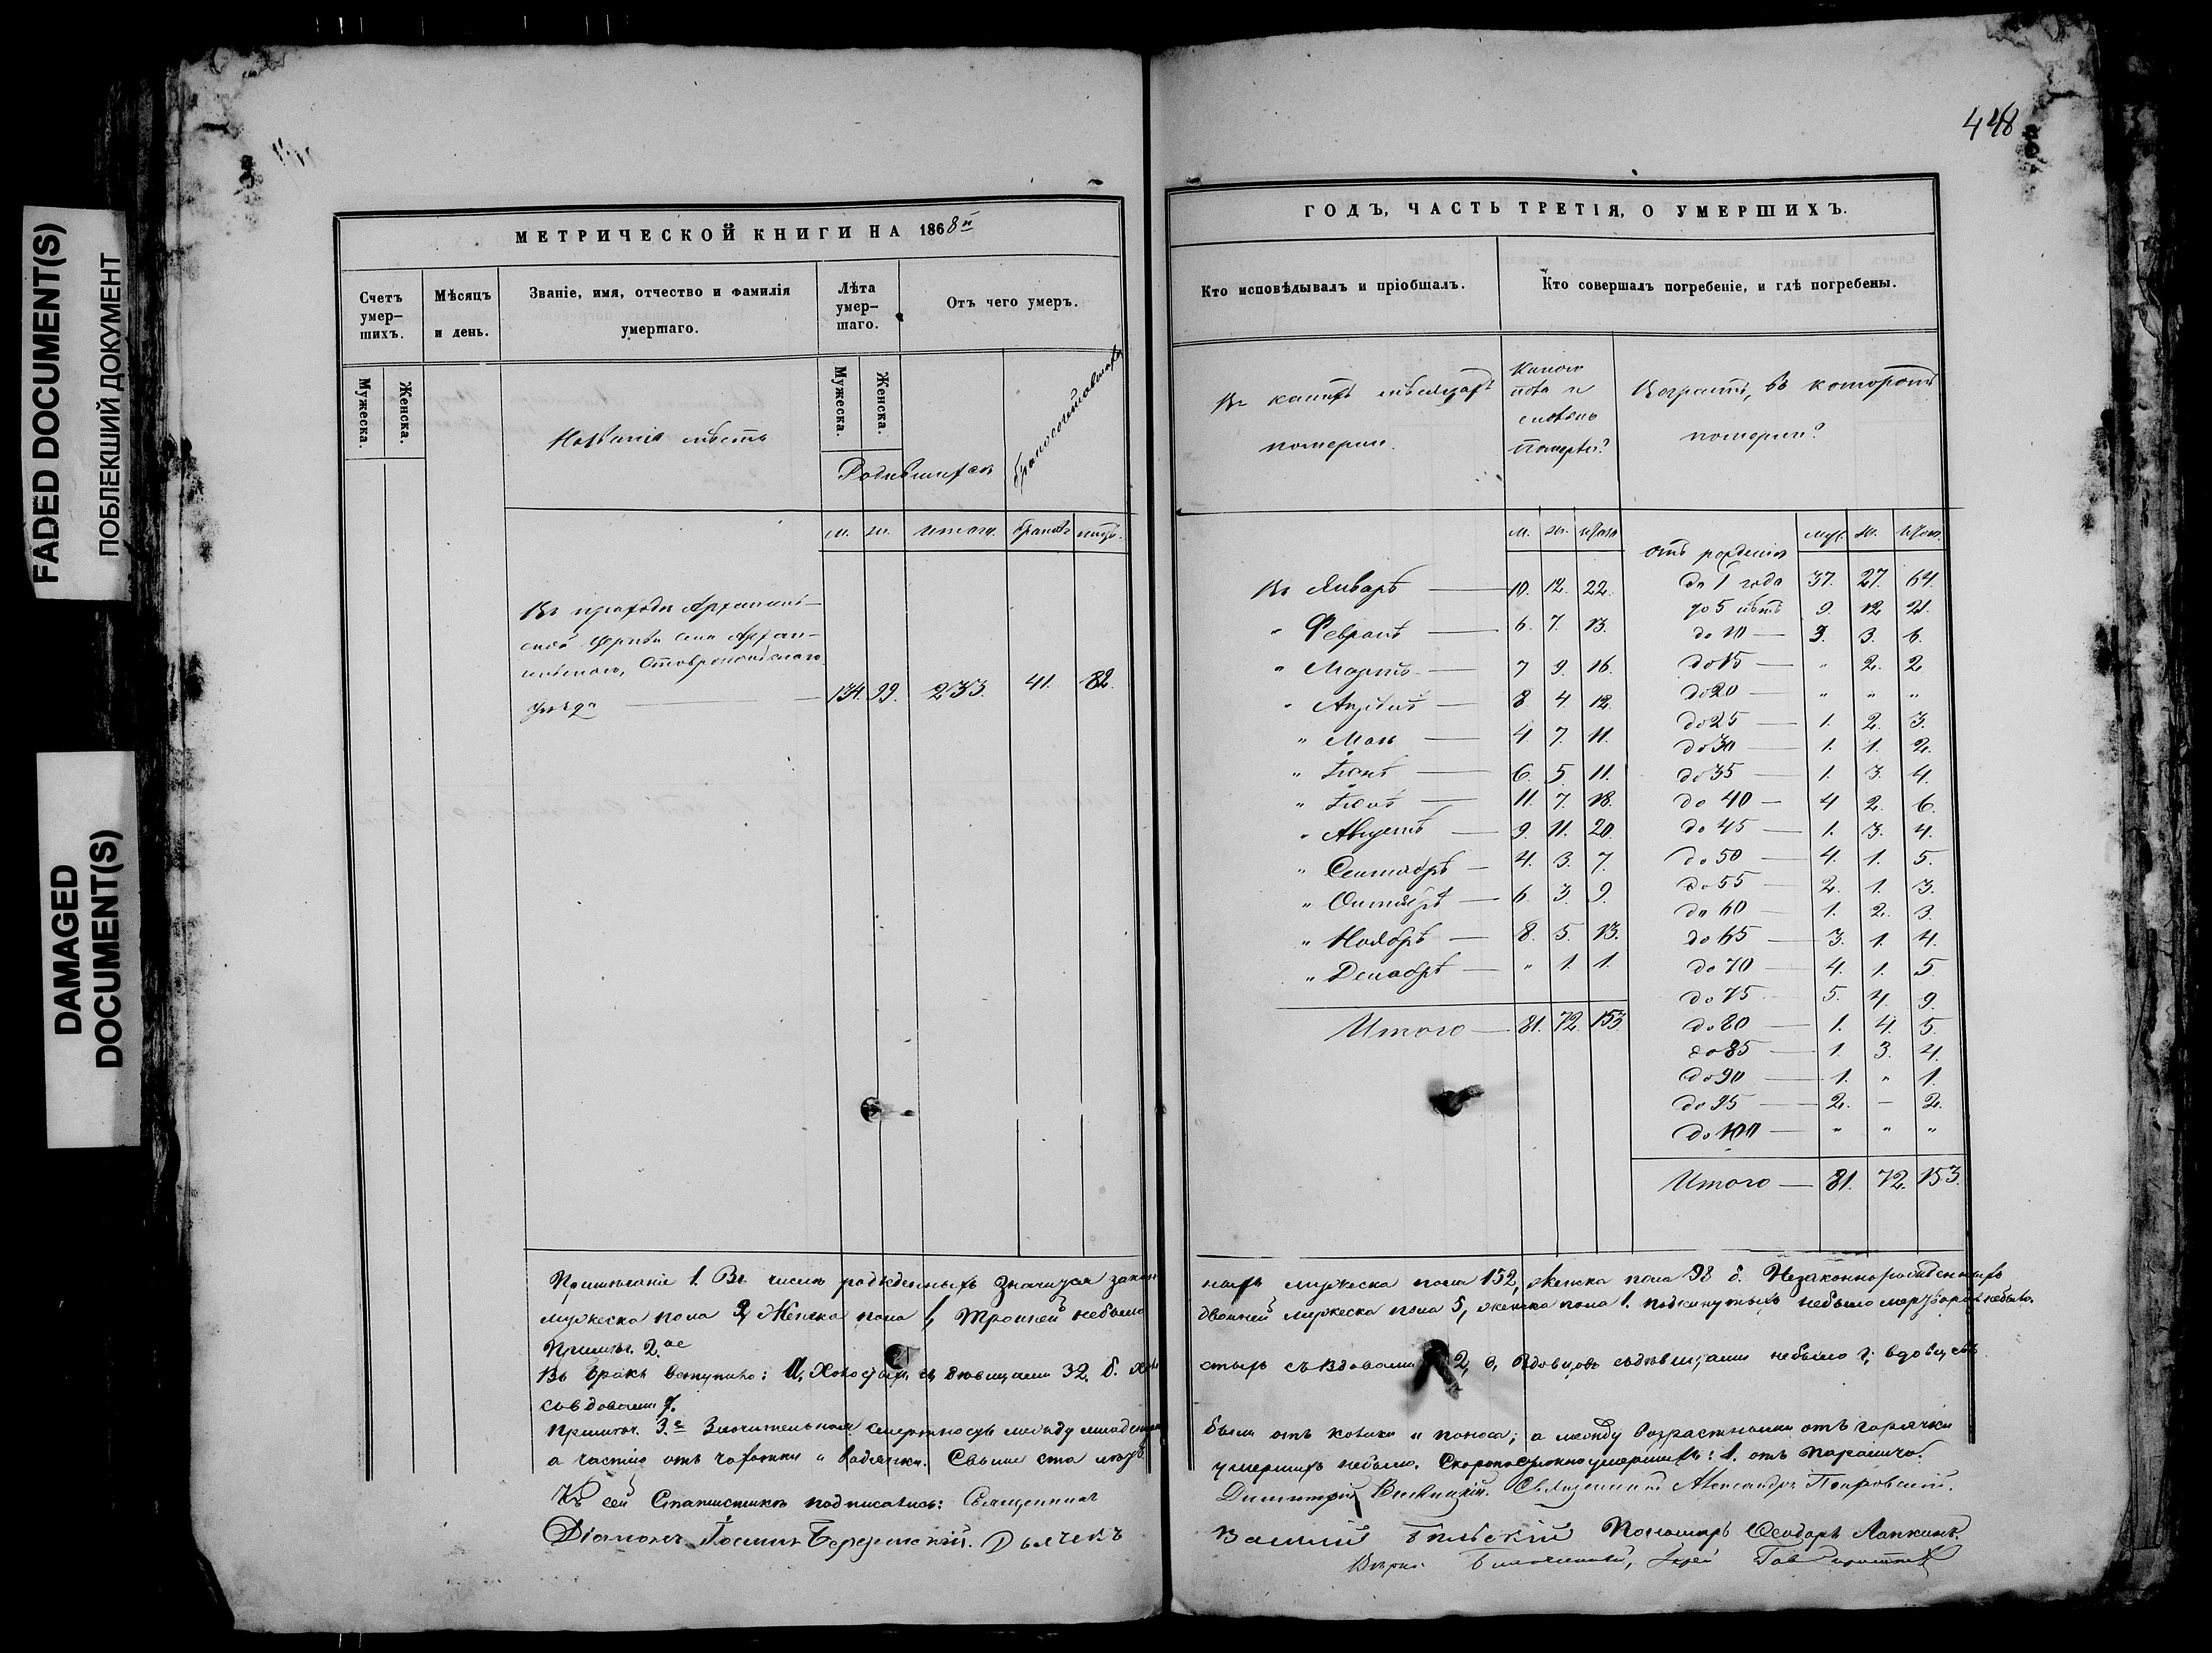 FADED DOCUMENT(S)
ПОБЛЕКШИЙ ДОКУМЕНТ
DAMAGED
DOCUMENT(S)
448
МЕТРИЧЕСКОЙ КНИГИ НА 1868й
Счетъ умер-шихъ. Мѣсяцъ и день. Званіе, имя, отчество и фамилія умершаго. Лѣта умер-шаго. Отъ чего умеръ.
Мужеска. Женска. Мужеска. Женска.
Названіе мѣстъ
Родившихся
м. ж. итого. браковъ лицъ.
Въ приходѣ Архангел-
ской церкви села Архан-
гельскаго, Ставропольскаго
уѣзда 134. 99. 233. 41. 82.
Примѣчаніе 1. Въ числѣ рожденныхъ значится закон
мужеска пола 2, Женска пола 1, Тройней небыло
Примѣч. 2.ое
Въ бракъ вступило: а, Холостыхъ съ дѣвицами 32. б. Холо
со вдовами 7.
Примѣч. 3.е Значительная смертность между младенцами
а частію отъ чахотки и водянки. Свыше ста лѣтъ
Къ сей Статистикѣ подписались: Священникъ
Діаконъ Дьячекъ
ГОДЪ, ЧАСТЬ ТРЕТІЯ, О УМЕРШИХЪ.
Кто исповѣдывалъ и пріобщалъ. Кто совершалъ погребеніе, и гдѣ погребены.
Въ какихъ мѣсяцахъ
померли.
Какого
пола и
сколько
померли?
Возрастъ, въ которомъ
померли?
м. ж. Итого
муж. ж. Итого.
Въ Январѣ 10. 12. 22.
" Февралѣ 6. 7. 13.
" Мартѣ 7 9. 16.
" Апрѣлѣ 8 4. 12.
" Маѣ 4. 7. 11.
" Іюнѣ 6. 5. 11.
" Іюлѣ 11. 7. 18.
" Августѣ 9. 11. 20.
" Сентябрѣ 4. 3. 7.
" Октябрѣ 6. 3. 9.
" Ноябрѣ 8. 5. 13.
" Декабрѣ " 1. 1.
Итого 81. 72. 153
отъ рожденія
до 1 года 37. 27. 64.
до 5 лѣтъ 9. 12. 21.
до 10 3. 3. 6.
до 15 " 2. 2
до 20 " " "
до 25 1. 2. 3.
до 30 1. 1. 2.
до 35 1. 3. 4.
до 40 4 2. 6.
до 45 1. 3. 4.
до 50 4. 1. 5.
до 55 2. 1. 3.
до 60 1. 2. 3.
до 65 3. 1. 4.
до 70 4. 1. 5.
до 75 5. 4. 9.
до 80 1. 4. 5.
до 85 1. 3. 4.
до 90 1. " 1.
до 95 2. - 2.
до 100 " " "
Итого 81. 72. 153.
ныхъ мужеска пола 152, женска пола 98 б. Незаконнорожденныхъ
двойней мужеска пола 5, женска пола 1. подкинутыхъ небыло небыло.
стыхъ съ вдовами 2, в, Вдовцовъ съ дѣвицами небыло г; вдовцевъ
были отъ колики и поноса; а между Возрастными отъ горячки
умершихъ небыло. Скоропостижно умершихъ: 1. отъ паралича.
Димитрій Священникъ Александръ Покровскій.
Василій Бѣльскій Пономарь Ѳеодоръ Лапкинъ.
Вѣрно: Благочинный, Іерей